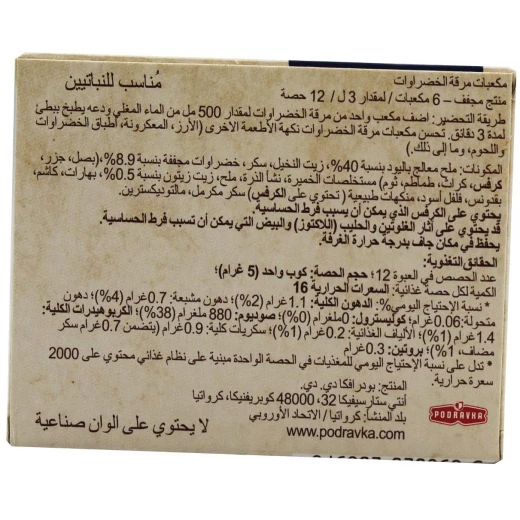 مكعبات مرقة الخضراوات
مُناسب للنباتيين
منتج مجفف – 6 مكعبات / لمقدار 3 ل / 12 حصة
طريقة التحضير: اضف مكعب واحد من مرقة الخضراوات لمقدار 500 مل من الماء المغلي ودعه يطبخ ببطئ
لمدة 3 دقائق. تحسن مكعبات مرقة الخضراوات نكهة الأطعمة الاخرى (الأرز، المعكرونة، أطباق الخضراوات
واللحوم، وما إلى ذلك.)
المكونات: ملح معالج باليود بنسبة 40%، زيت النخيل، سكر، خضراوات مجففة بنسبة 8.9%،(بصل، جزر،
كرفس، كراث، طماطم، ثوم) مستخلصات الخميرة، نشا الذرة، ملح، زيت زيتون بنسبة 0.5%، بهارات، كاشم،
بقدونس، فلفل أسود، منكهات طبيعية (تحتوي على الكرفس) سكر مكرمل، مالتوديكسترين.
يحتوي على الكرفس الذي يمكن أن يسبب فرط الحساسية.
قد يحتوي على أثار الغلوتين والحليب (اللاكتوز) والبيض التي يمكن أن تسبب فرط الحساسية.
يحفظ في مكان جاف بدرجة حرارة الغرفة.
الحقائق التغذوية:
عدد الحصص في العبوة 12؛ حجم الحصة: كوب واحد (5 غرام)؛
الكمية لكل حصة غذائية: السعرات الحرارية 16
* نسبة الإحتياج اليومي%: الدهون الكلية: 1.1غرام (2%)؛ دهون مشبعة: 0.7غرام (4%)؛ دهون
متحولة: 0.06غرام؛ كوليسترول: 0ملغرام (0%)؛ صوديوم: 880 ملغرام (38%)؛ الكربوهيدرات الكلية:
1.4 غرام (1%)؛ الألياف الغذائية: 0.2 غرام (1%)؛ سكريات كلية: 0.9غرام (يتضمن 0.7غرام سكر
مضاف، 1%)؛ بروتين: 0.3غرام
* تدل على نسبة الإحتياج اليومي للمغذيات في الحصة الواحدة مبنية على نظام غذائي محتوي على 2000
سعرة حرارية.
المنتج: بودرافكا دي. دي.
أنتي ستارسيفيكا 32، 48000 كوبريفنيكا، كرواتيا
بلد المنشأ: كرواتيا / الاتحاد الأوروبي
www.podravka.com
PODRAVKA
لا يحتوي على الوان صناعية